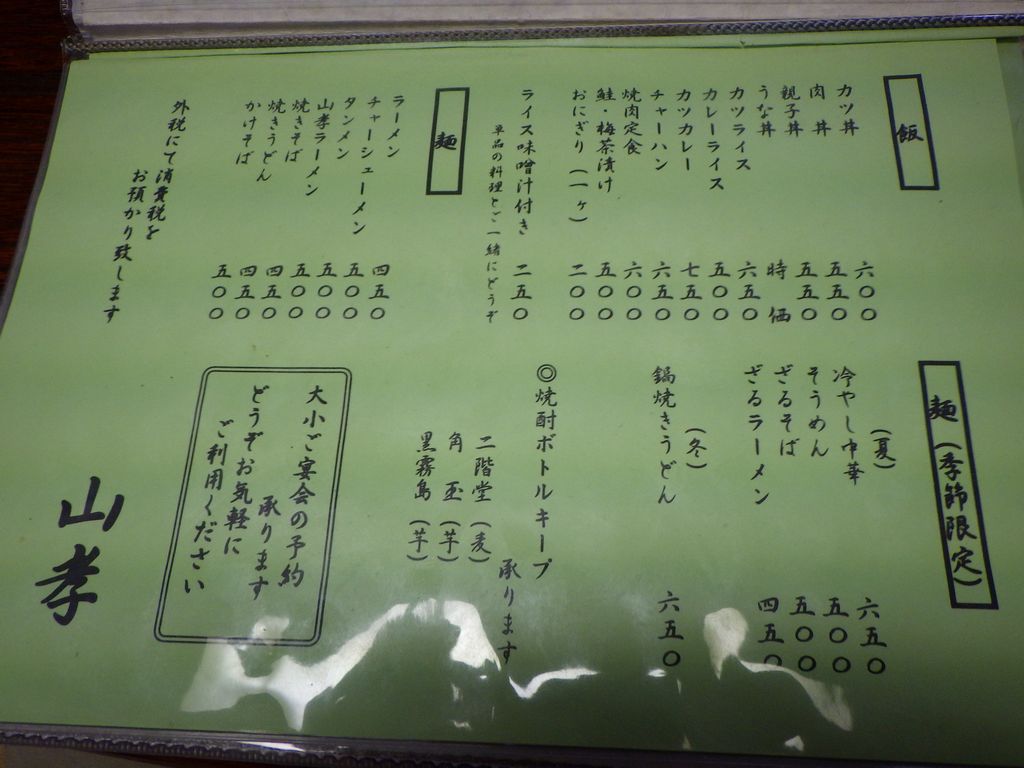 飯
カツ丼 六〇〇
肉丼 五五〇
親子丼 五五〇
うな丼 時価
カツライス 六五〇
カレーライス 五〇〇
カツカレー 七五〇
チャーハン 六五〇
焼肉定食 六〇〇
鮭 梅茶漬け 五〇〇
おにぎり(一ヶ) 二〇〇
ライス味噌汁付き 二五〇
単品の料理とご一緒にどうぞ
麺
ラーメン 四五〇
チャーシューメン 五〇〇
タンメン 五〇〇
山孝ラーメン 五〇〇
焼きそば 四五〇
焼きうどん 四五〇
かけそば 五〇〇
外税にて消費税を
お預かり致します
麺(季節限定)
(夏)
冷やし中華 六五〇
そうめん 五〇〇
ざるそば 五〇〇
ざるラーメン 四五〇
(冬)
鍋焼きうどん 六五〇
◎焼酎ボトルキープ
承ります
二階堂(麦)
角玉(芋)
黒霧島(芋)
大小ご宴会の予約
承ります
どうぞお気軽に
ご利用ください
山孝